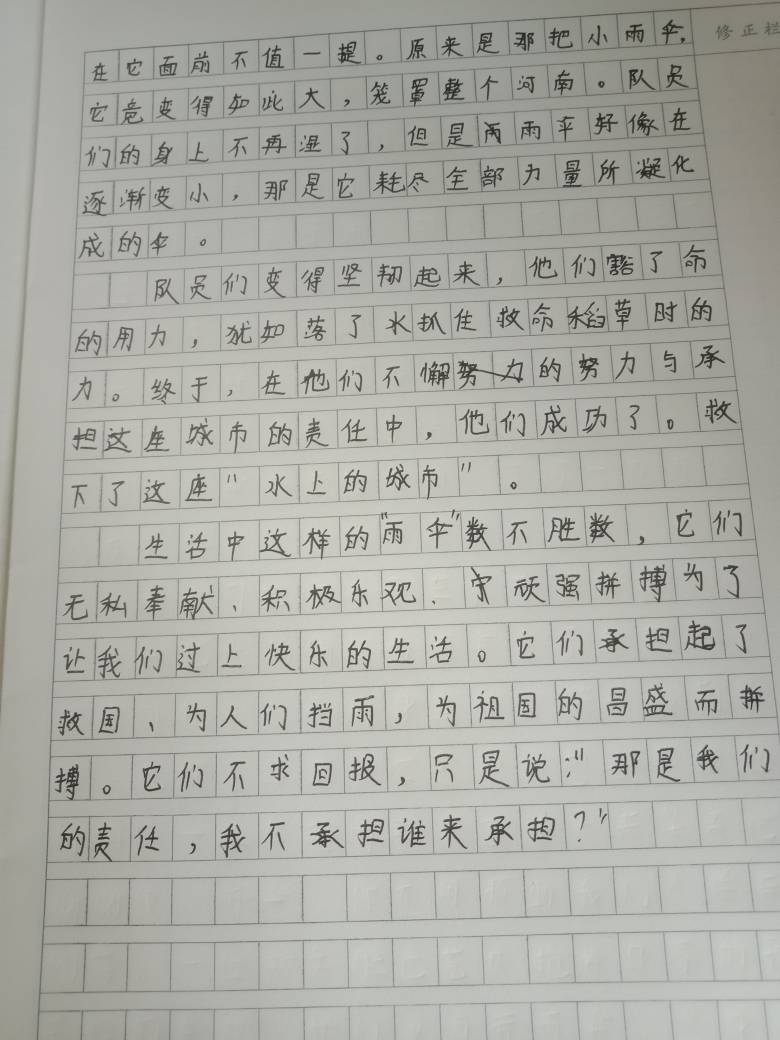 修正栏
在它面前不值一提。原来是那把小雨伞,
它竟变得如此大，笼罩整个河南。队员
们的身上不再湿了，但是两雨伞好像在
逐渐变小，那是它耗尽全部力量所凝化
成的伞。
队员们变得坚韧起来，他们豁了命
的用力，犹如落了水抓住救命稻草时的
力。终于，在他们不懈的努力与承
担这座城市的责任中，他们成功了。救
下了这座"水上的城市"。
生活中这样的"雨伞"数不胜数，它们
无私奉献、积极乐观、顽强拼搏为了
让我们过上快乐的生活。它们承担起了
救国、为人们挡雨，为祖国的昌盛而拼
搏。它们不求回报，只是说:"那是我们
的责任，我不承担谁来承担?"